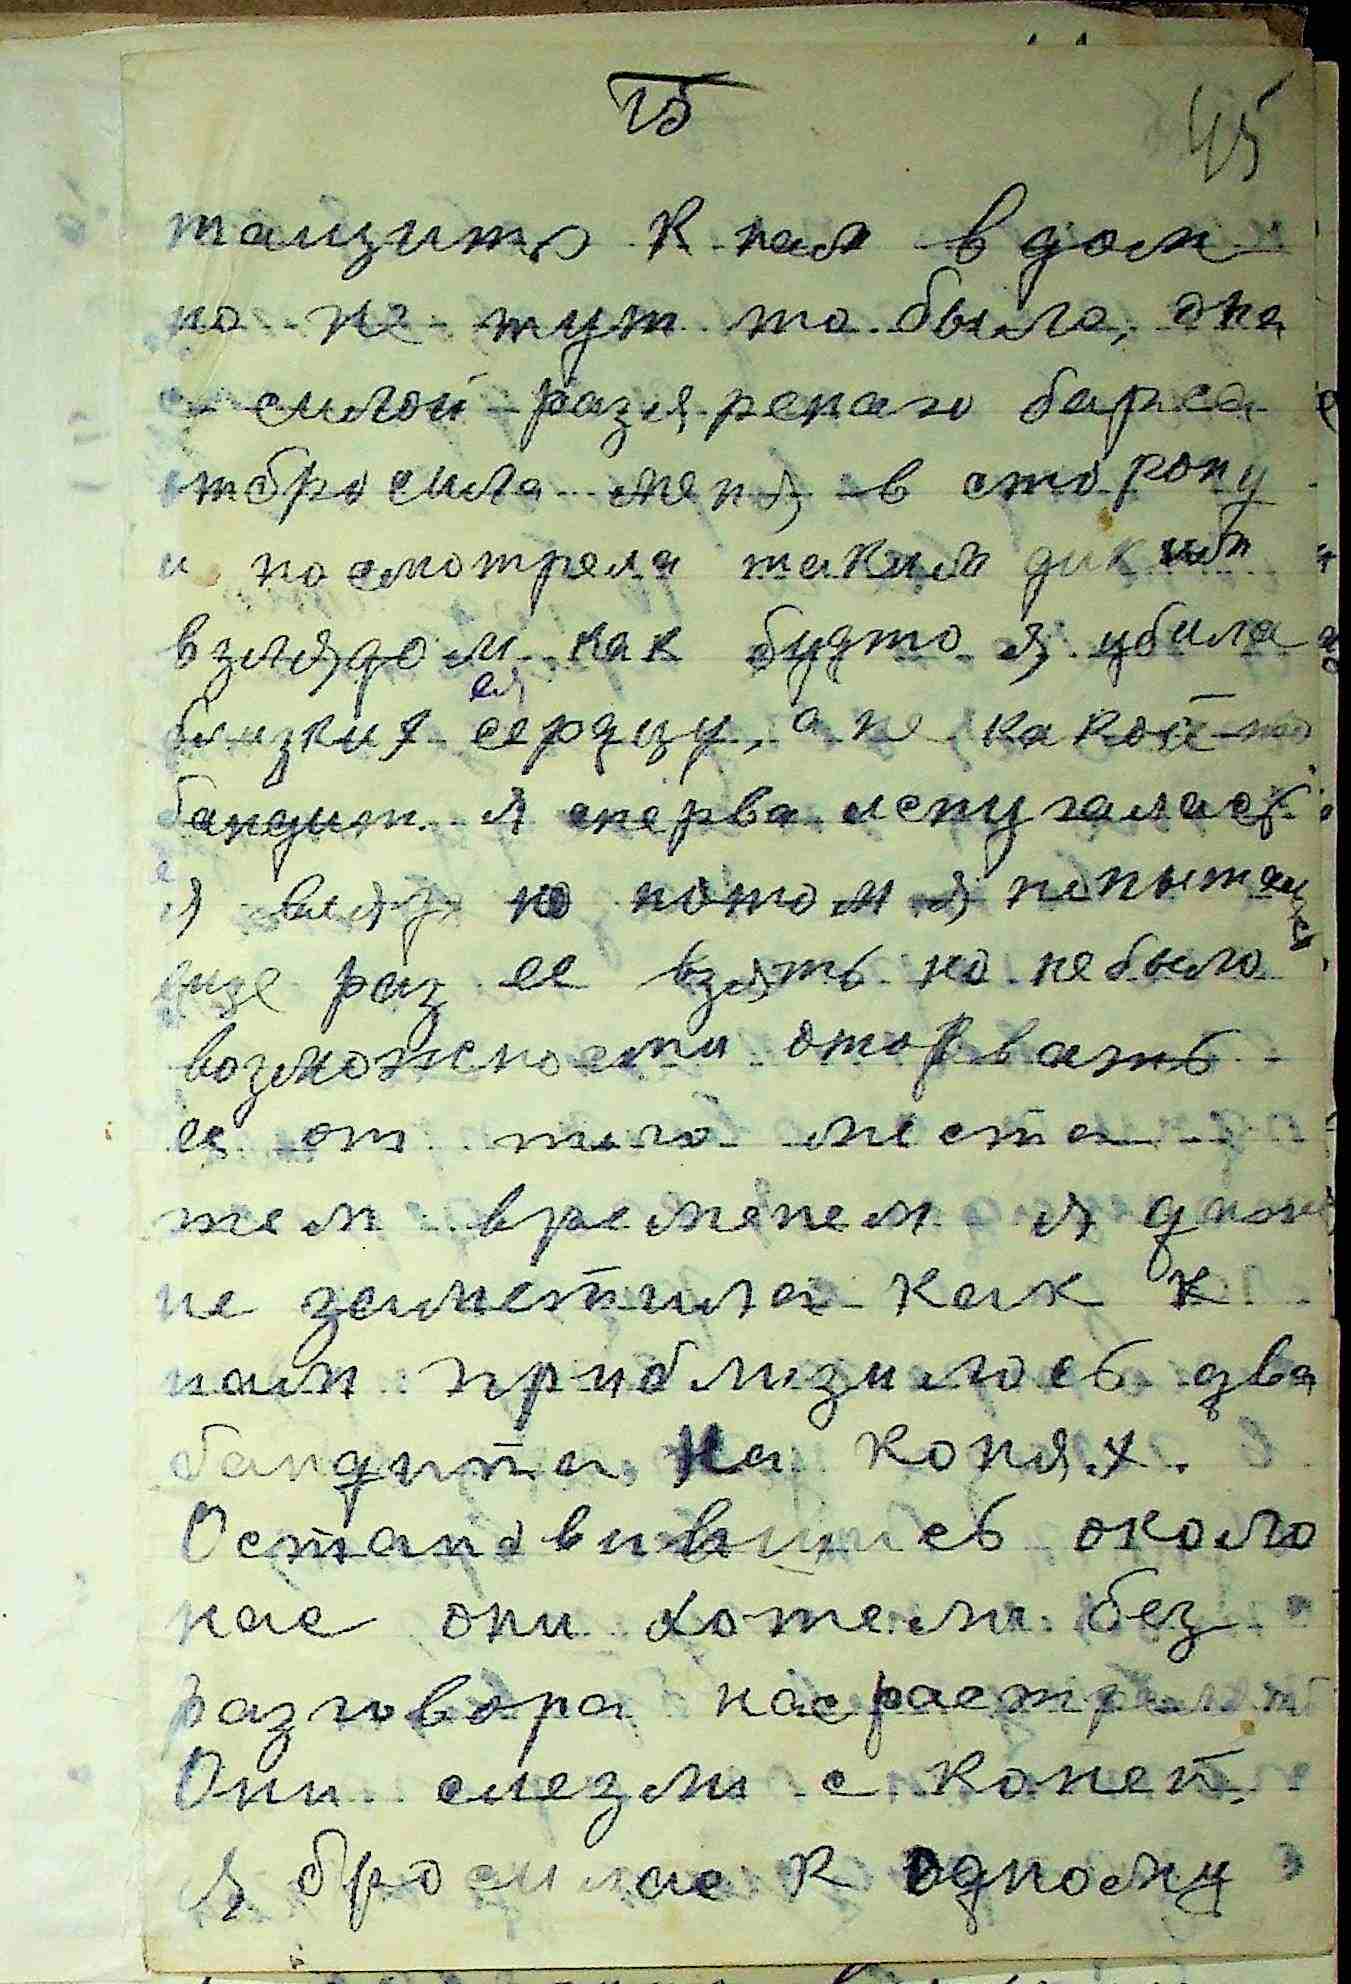 15
45
тащить к нам в дом
но не тут то было, она
с силой разяренаго барса
отбросила меня в сторону
и посмотрела таким диким
взлядом как будто я убила
ея
близких сердцу, а не какой-то
бандит я сперва испугалась
я но потом я попыталась
еще раз ее взять но небыло
возможности оторвать
ея от того места
тем временем я даже
не заметила как к
нам приблизилось два
бандита на конях.
Остановившись около
нас они хотели без
разговора нас растрелят
Они слезли с коней.
я бросилас к одному